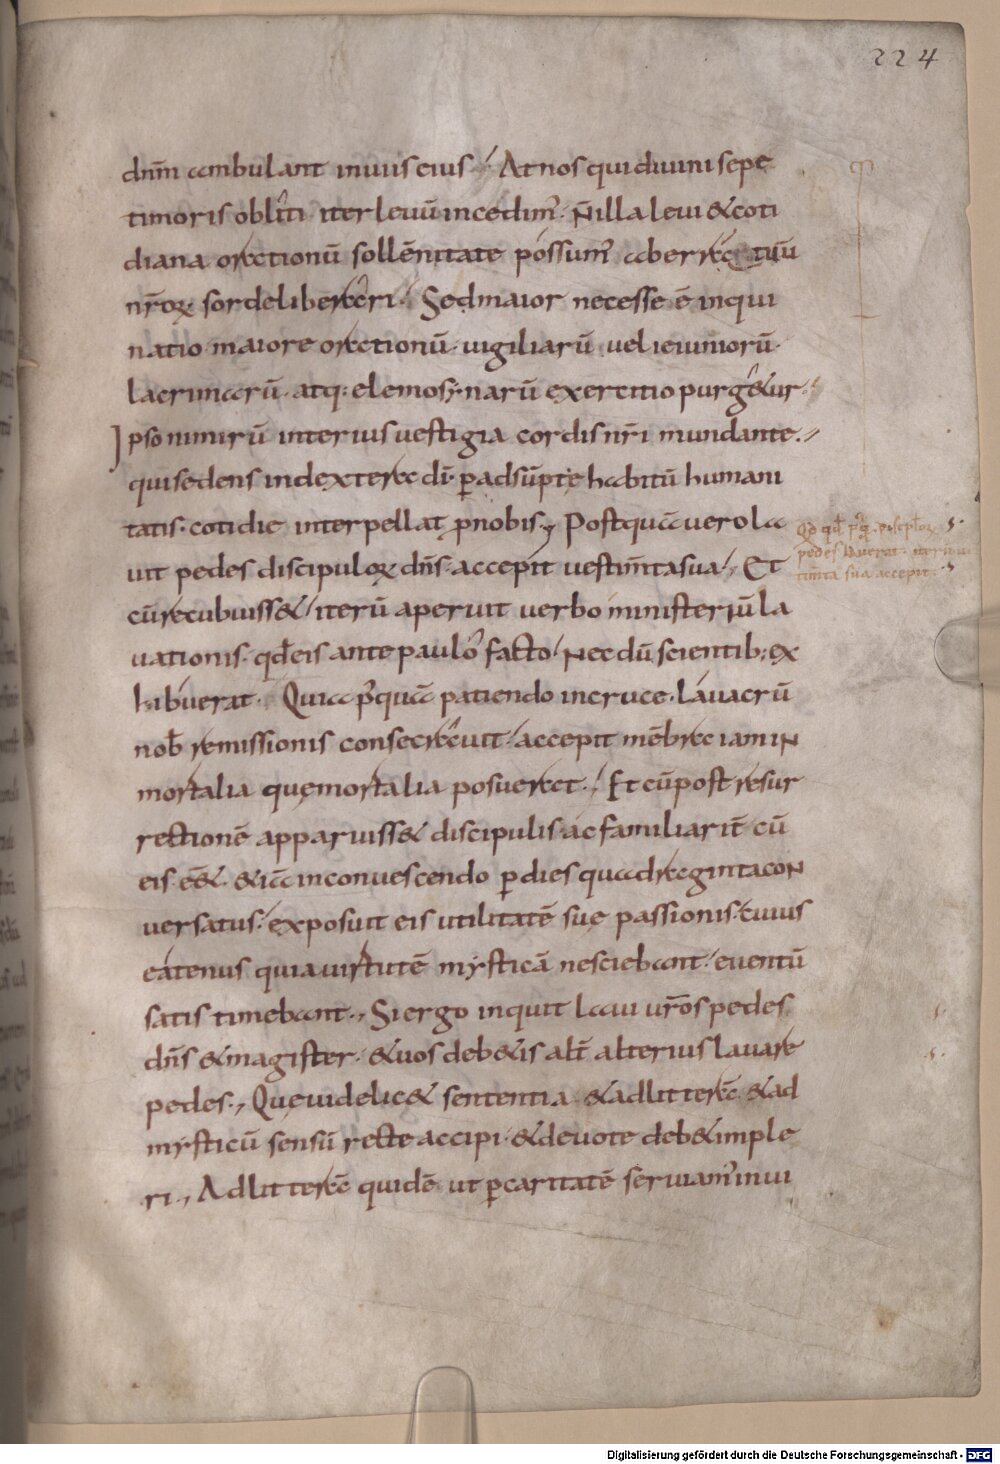 224
dnm̄ ambulant inuiis eius. At nos qui diuini sepe
timoris obliti iter leuū incedim᾽. n̄ illa leui & coti
diana orationū sollēnitate possum᾽ aberratuū
nr̄oꝝ sorde liberari. Sed maior necesse ē inqui
natio maiore orationū. uigiliarū uel ieiuniorū.
lacrimarū. atq: elemosynarū exercitio purg&ur.
Ipso nimirū interius uestigia cordis nr̄i mundante.
qui sedens in dextera dī. ꝑ adsūptę habitū humani
tatis. cotidie interpellat ꝓ nobis. Postquā uero la
uit pedes discipuloꝝ dn̄s. accepit uestim̄ta sua. Et
cū recubuiss& iterū aperuit uerbo ministeriū la
uationis. qd̄ eis ante paulo facto nec dū scientib; ex
hibuerat. Quia p᾽quā patiendo in cruce. lauacrū
nob̄ remissionis consecrauit. accepit mēbra iam in
mortalia quę mortalia posuerat. Et cū post resur
rectionē apparuiss& discipulis. ac familiarit̄ cū
eis ēē&. &iā in conuescendo ꝑ dies quadraginta con
uersatus. exposuit eis utilitatē suę passionis. cuius
eatenus quia uirtutē mysticā nesciebant. euentū
satis timebant. Si ergo inquit laui ur̄os pedes
dn̄s & magister. & uos deb&is alt̄ alterius lauare
pedes. Quę uidelic& sententia & ad litterā. & ad
mysticū sensū recte accipi. & deuote deb& imple
ri. Ad litterā quidē ut ꝑ caritatē seruiam᾽ inui
Qd qd p᾽q̄ discipl̄oꝝ
pedes lauerat. iterū
tim̄ta sua accepit.
Digitalisierung gefördert durch die Deutsche Forschungsgemeinschaft - DFG